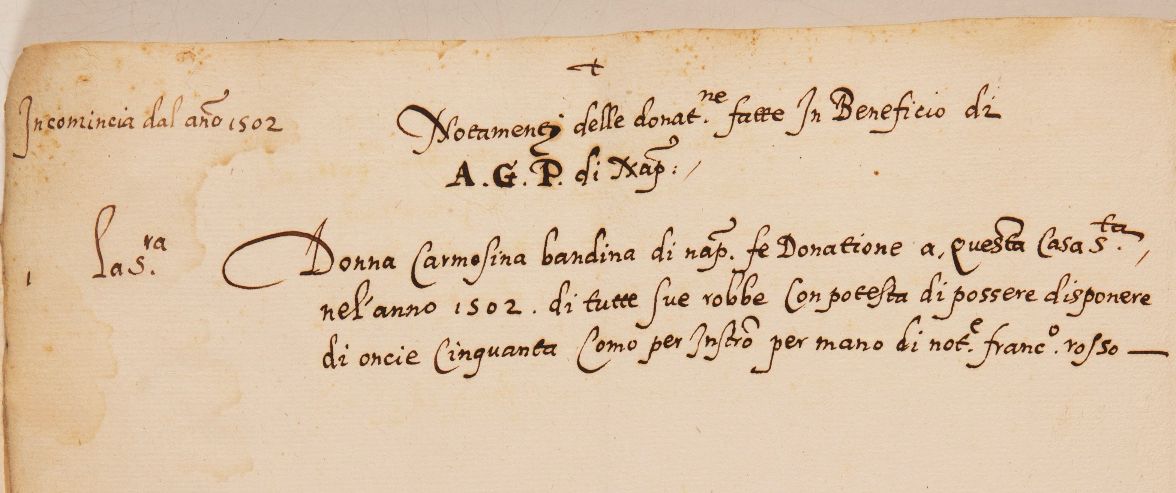 +
Incomincia dal año 1502
Notamenti delle donat.ne fatte In Beneficio di
A.G.P. di Nap:
1 la s.ra Donna Carmosina bandina di nap. fe Donatione a, questa Casa s.ta,
nel'anno 1502. di tutte sue robbe Con potesta di possere disponere
di oncie Cinquanta Como per Instrõ per mano di not.e franc.o rosso —